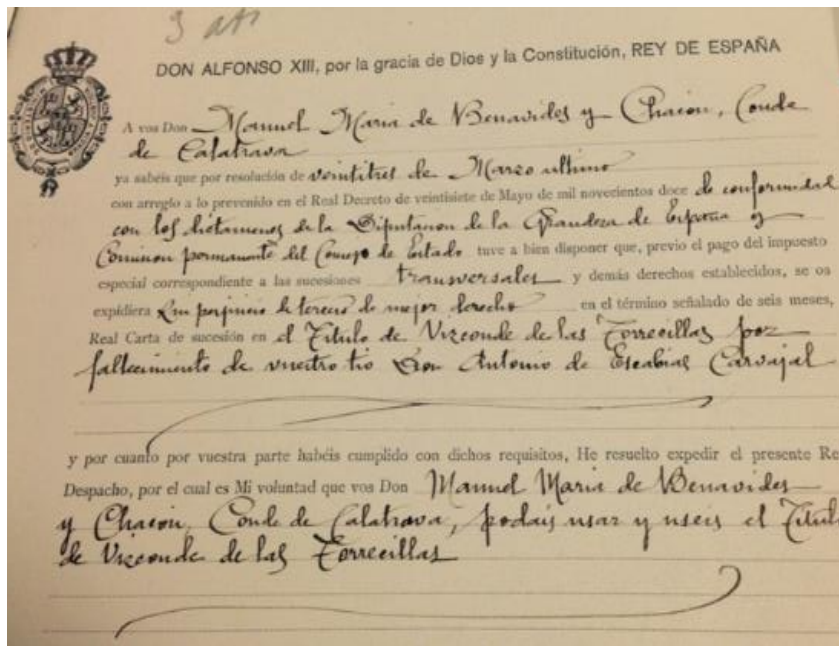 DON ALFONSO XIII, por la gracia de Dios y la Constitución, REY DE ESPAÑA
A vos Don Manuel Maria de Benavides y Chacon, Conde
de Calatrava
ya sabéis que por resolución de veintitres de Marzo ultimo
con arreglo a lo prevenido en el Real Decreto de veintisiete de Mayo de mil novecientos doce de conformidad
con los dictamenes de la Diputacion de la Grandeza de España y
Comision permanente del Consejo de Estado tuve a bien disponer que, previo el pago del impuesto
especial correspondiente a las sucesiones transversales y demás derechos establecidos, se os
expidiera sin perjuicio de tercero de mejor derecho en el término señalado de seis meses,
Real Carta de sucesión en el Titulo de Vizconde de las Torrecillas por
fallecimiento de vuestro tio Don Antonio de Escabias Carvajal
y por cuanto por vuestra parte habéis cumplido con dichos requisitos, He resuelto expedir el presente Re
Despacho, por el cual es Mi voluntad que vos Don Manuel Maria de Benavides
y Chacon, Conde de Calatrava, podais usar y useis el Titulo
de Vizconde de las Torrecillas